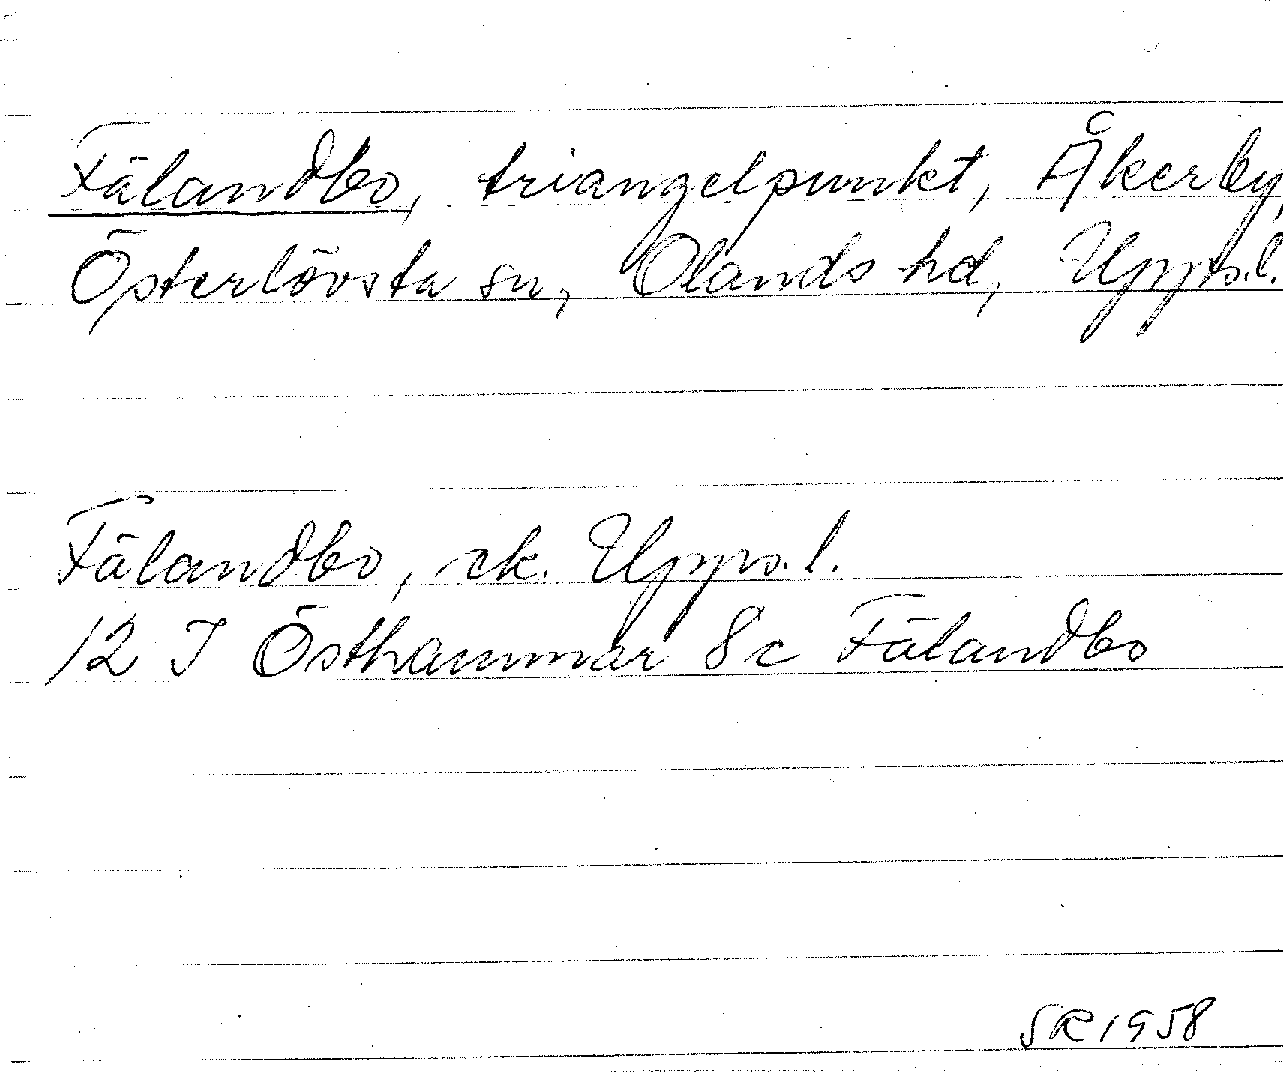 Fälandbo, triangelpunkt, Åkerby,
Österlövsta sn, Olands hd, Upps.l.
Fälandbo, ek. Upps.l.
12 I Östhammar 8c Fälandbo
SR 1958